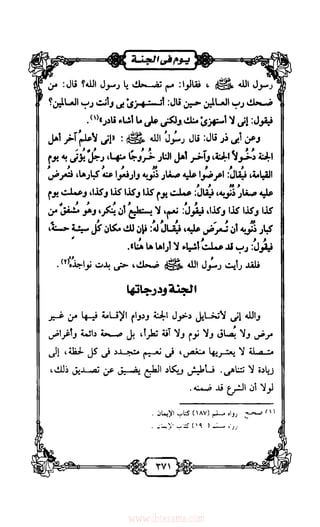 يوم فى الجنة
رسول الله ﷺ ، فقالوا: مم تضحك يا رسول الله؟ قال: من
ضحك رب العالمين حين قال: أتستهزئ بى وأنت رب العالمين؟
فيقول: إنى لا أستهزئ منك ولكنى على ما أشاء قادر» (١).
وعن أبى ذر قال: قال رسُولُ الله ﷺ : «إنى لأعلمُ آخر أهل
الجنة دُخُولاً الجنة، وآخر أهل النار خُرُوجًا منها، رجُلٌ يُؤتى به يوم
القيامة، فيُقالُ: اعرضُوا عليه صغار ذُنُوبه وارفعُوا عنهُ كبارها، فتُعرضُ
عليه صغارُ ذُنُوبه، فيُقالُ: عملت يوم كذا وكذا كذا وكذا، وعملت يوم
كذا وكذا كذا وكذا، فيقُولُ: نعم، لا يستطيعُ أن يُنكر، وهُو مُشفقٌ من
كبار ذُنُوبه أن تُعرض عليه، فيُقالُ لهُ: فإن لك مكان كُل سيئة حسنة،
فيقُولُ: رب قد عملتُ أشياء لا أراها ها هُنا».
فلقد رأيت رسُول الله ﷺ ضحك، حتى بدت نواجذُهُ (٢).
الجنة ودرجاتها
والله إنى لأتخايل دخول الجنة ودوام الإقامة فيها من غير
مرض ولا بُصاق ولا نوم ولا آفة تطرأ، بل صحة دائمة وأغراض
متصلة لا يعتريها منغص، فى نعيم متجدد فى كل لحظة، إلى
زيادة لا تتناهى. فأطيش ويكاد الطبع يضيق عن تصديق ذلك،
لولا أن الشرع قد ضمنه.
(١) صحيح رواه مسلم (١٨٧) كتاب الإيمان .
٣٧١
www.ibtesama.com